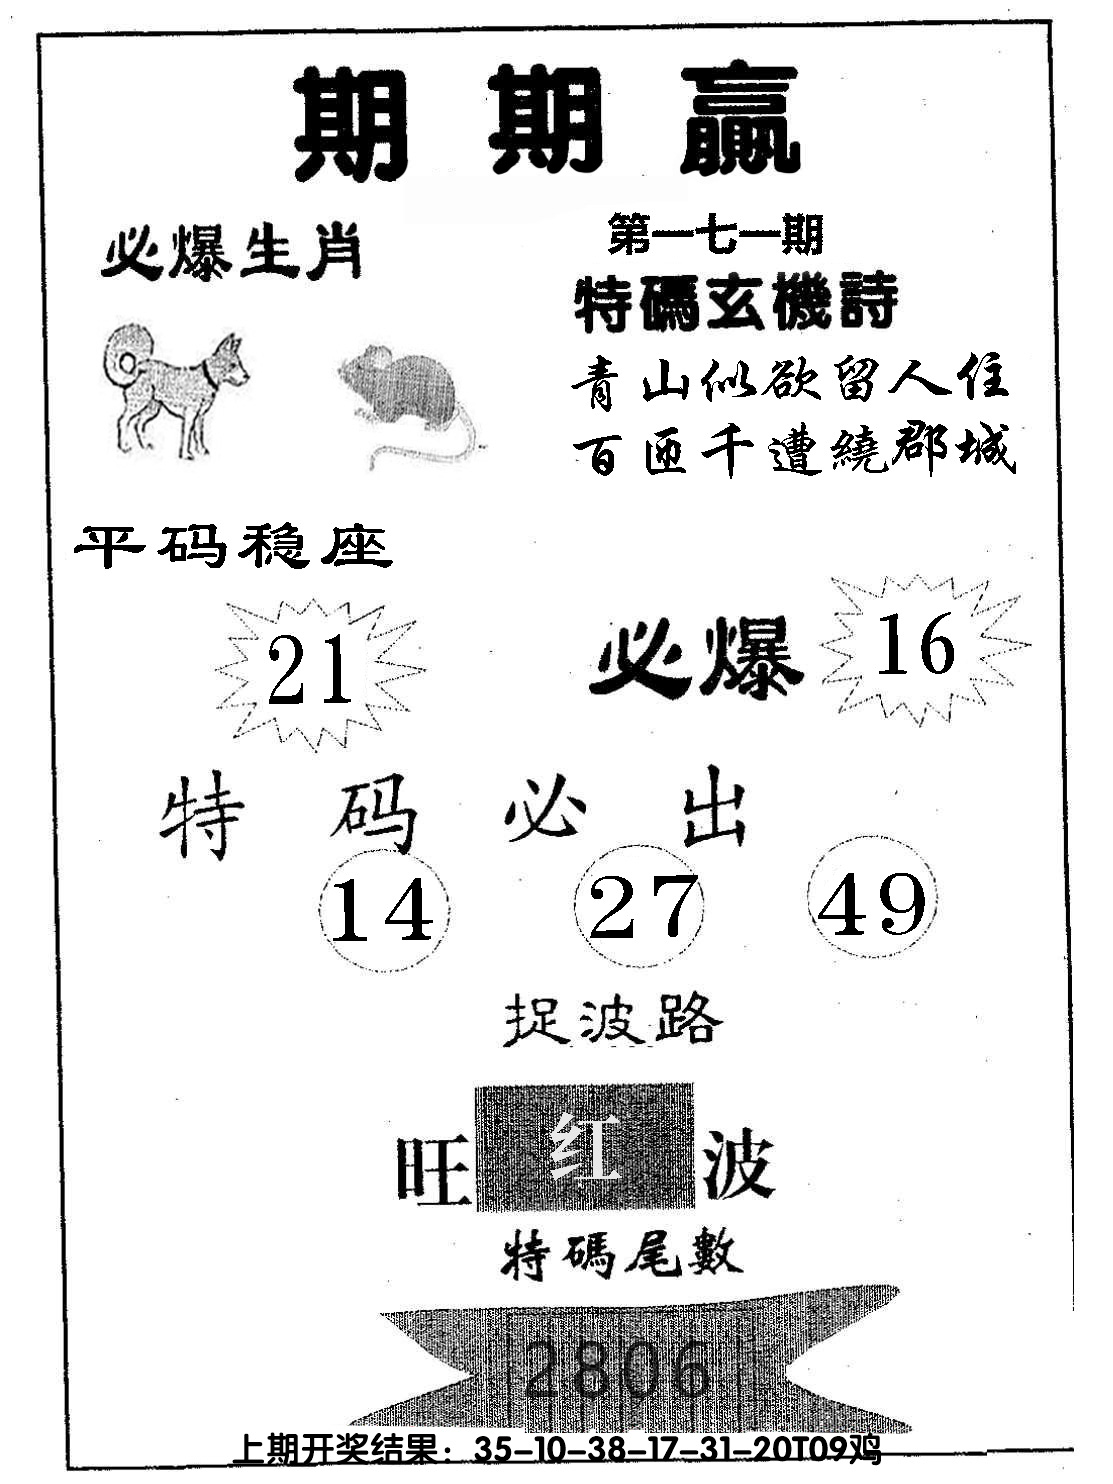 期期赢
必爆生肖
第一七一期
特碼玄機詩
青山似欲留人住
百匝千遭繞郡城
平码稳座
21
必爆
16
特码必出
14 27 49
捉波路
旺红波
特碼尾數
2806
上期开奖结果：35-10-38-17-31-20T09鸡